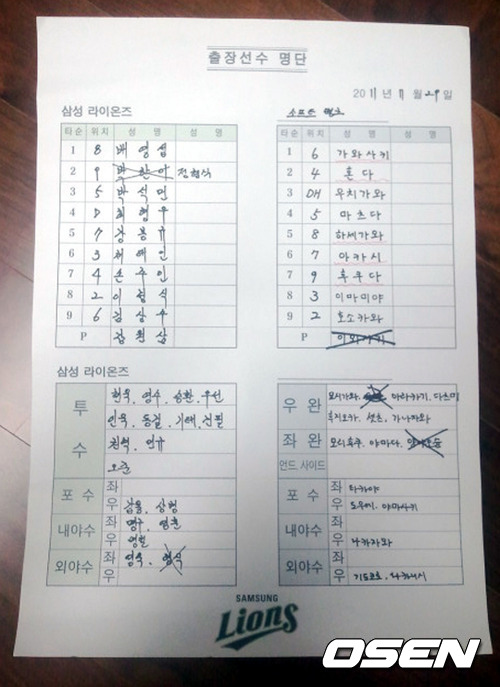 출장선수 명단
2011년 11월 29일
삼성 라이온즈
타순 위치 성 명 성 명
1 8 배영섭
2 9 박한이 정형식
3 5 박석민
4 D 최형우
5 7 강봉규
6 3 채태인
7 4 손주인
8 2 이정식
9 6 김상수
P
소프트 뱅크
타순 위치 성 명 성 명
1 6 가와사키
2 4 혼다
3 DH 우치가와
4 5 마츠다
5 8 하세가와
6 7 아카시
7 9 후쿠다
8 3 이마미야
9 2 호소카와
P 이와사키
삼성 라이온즈
투수
현욱, 영수, 승환, 우선
인욱, 동걸, 기태, 건필
오준
포수 좌 우
내야수 좌 우
외야수 좌 우
영욱, 형식
우완
모시가와, 아라카키, 다츠미
후지오카, 가나자와
좌완
모리후쿠, 야마다,
언드, 사이드
포수 좌 우
타카야
도우에, 야마사키
내야수 좌 우
나카자와
외야수 좌 우
SAMSUNG
Lions
OSEN